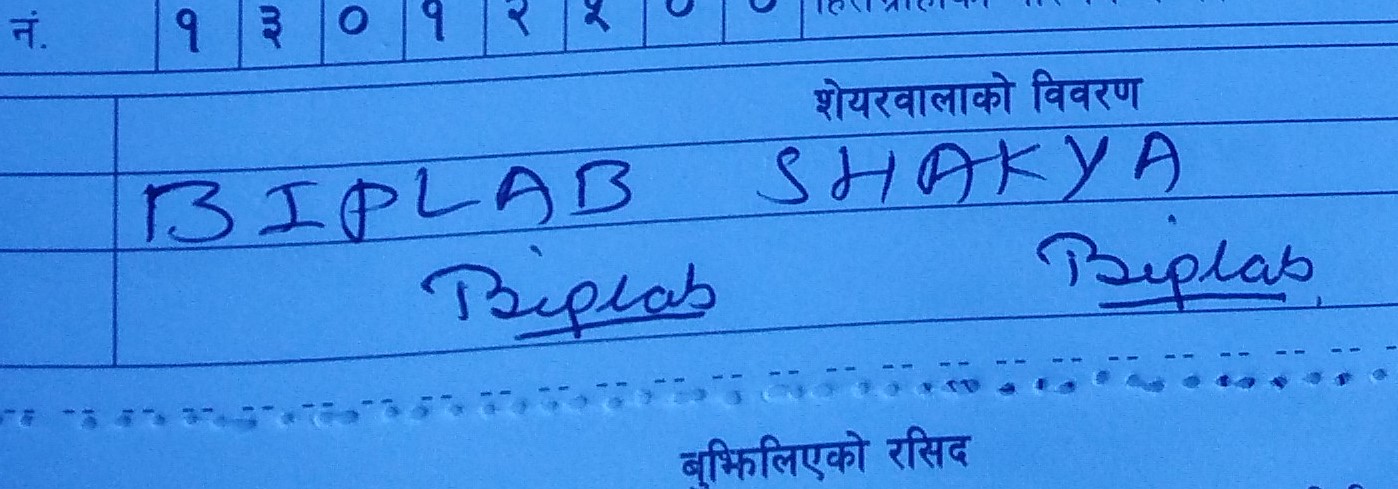 नं. १ ३ ० १ २ ५ ० ०
शेयरवालाको विवरण
BIPLAB SHAKYA
Biplab Biplab
बुझिलिएको रसिद